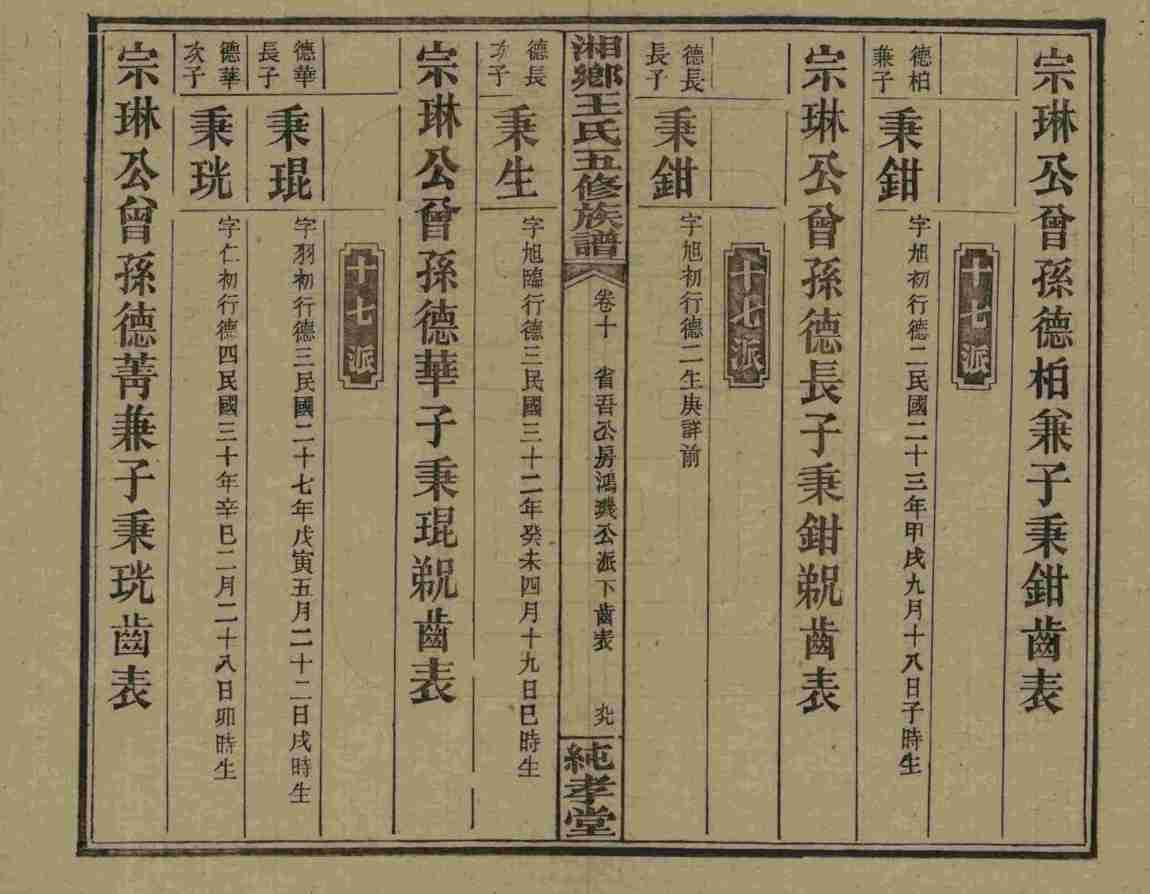 宗琳公曾孫德柏兼子秉鉗齒表
十七派
德柏
兼子
秉鉗
字旭初行德二民國二十三年甲戌九月十八日子時生
宗琳公曾孫德長子秉鉗覶齒表
十七派
德長
長子
秉鉗
字旭初行德二生庚詳前
湘鄉王氏五修族譜
卷十
省吾公房鴻璣公派下齒表
九
純孝堂
德長
次子
秉生
字旭臨行德三民國三十二年癸未四月十九日巳時生
宗琳公曾孫德華子秉琨覶齒表
十七派
德華
長子
秉琨
字羽初行德三民國二十七年戊寅五月二十二日戌時生
德華
次子
秉珖
字仁初行德四民國三十年辛巳二月二十八日卯時生
宗琳公曾孫德菁兼子秉珖齒表